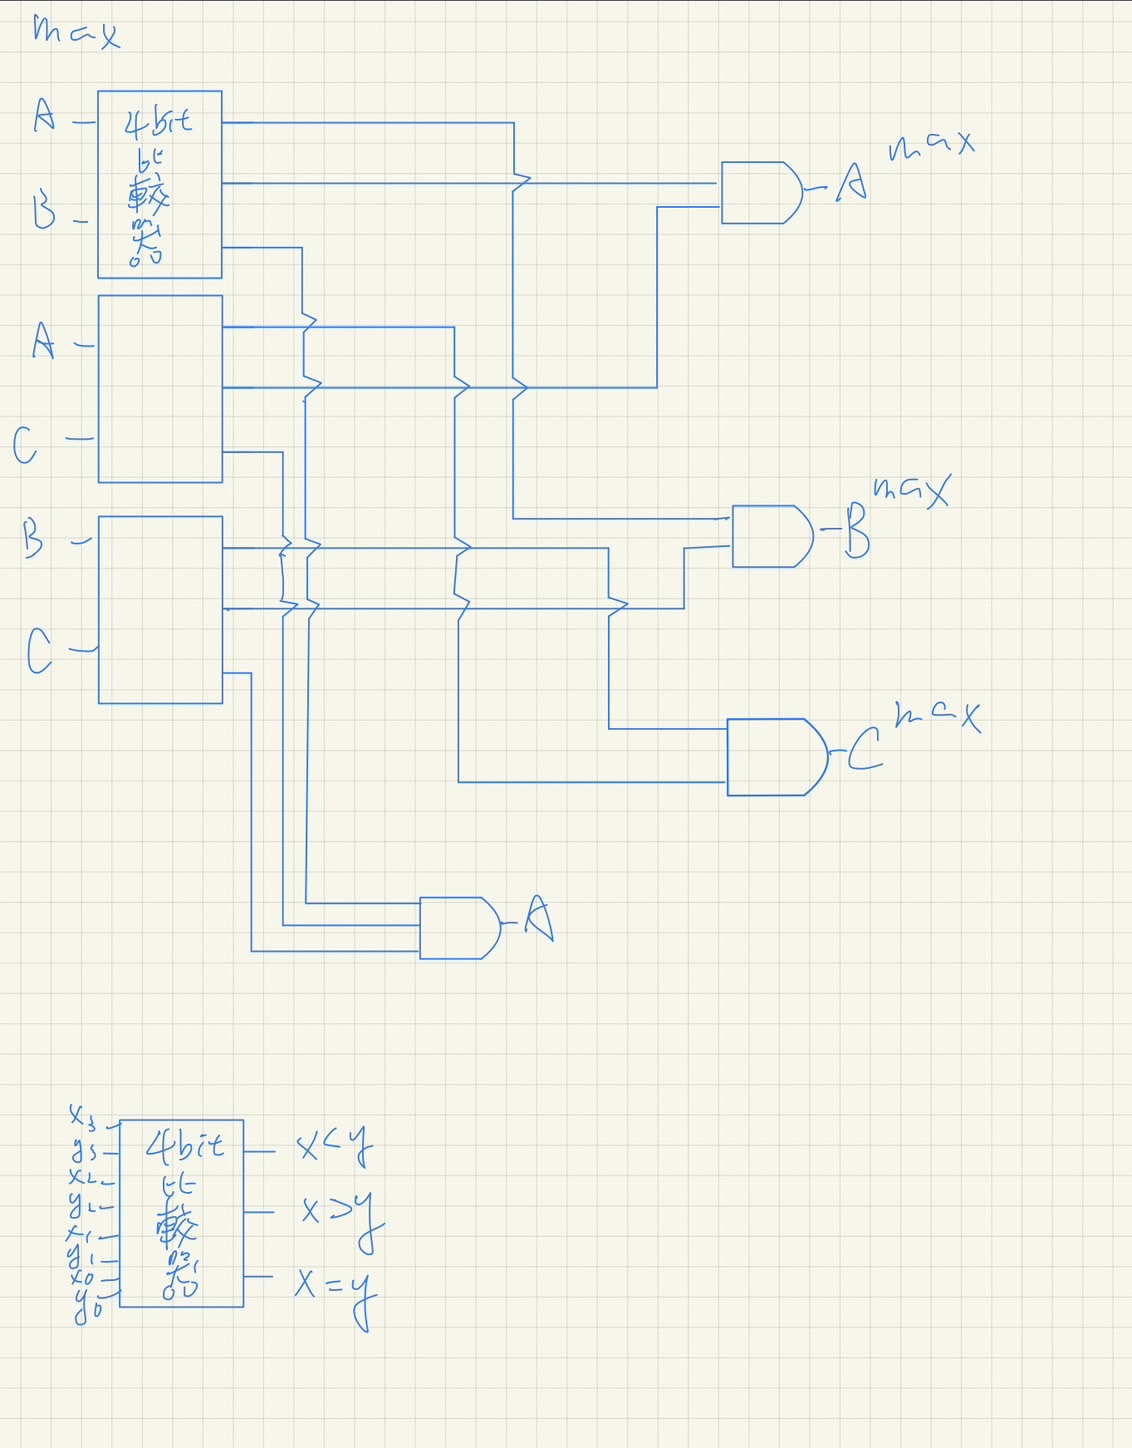 max
A
4bit
比
較
器
B
A max
A
C
B max
B
C
C max
A
x3
y3
x2
y2
x1
y1
x0
y0
4bit
比
較
器
x<y
x>y
x=y